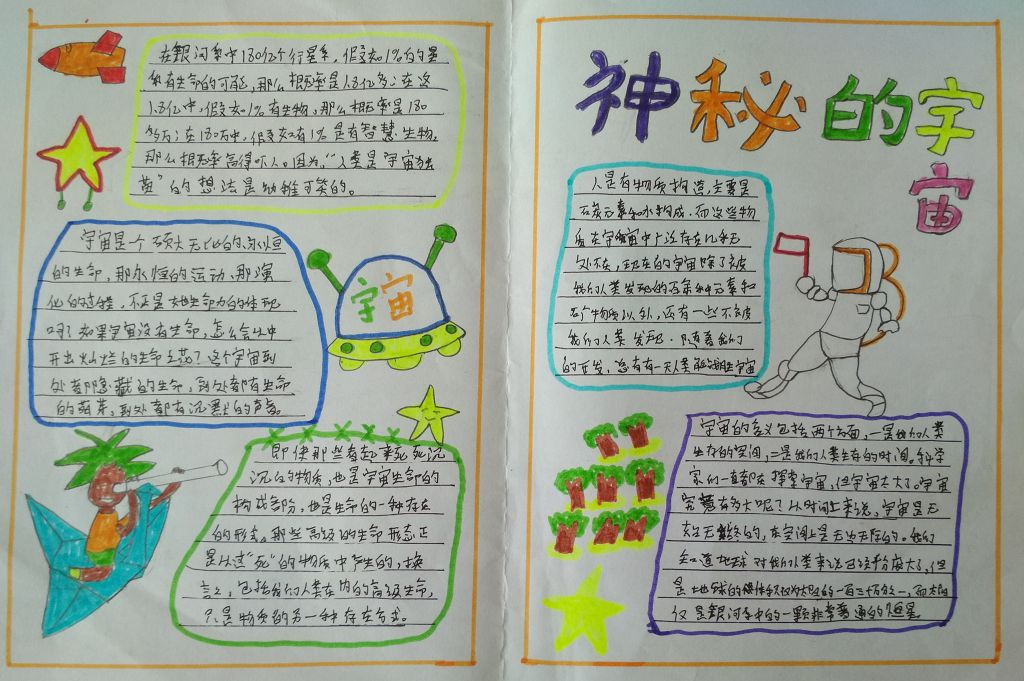 在銀河系中180亿个行星系,假如1%的星
系有生命的可能,那么概率是1.8亿多;在这
1.8亿中,假如1%有生物,那么概率是180
多万;在180万中,假如有1%是有智慧生物,
那么概率高得吓人。因为,“人类是宇宙独
苗”的想法是幼稚可笑的。
宇宙是一个硕大无比的、永恒
的生命,那永恒的运动、那演
化的过程,不正是她生命力的体现
吗?如果宇宙没有生命,怎么会从中
开出灿烂的生命之花?这个宇宙到
处都隐藏的生命,到处都有生命
的萌芽,到处都有沉默的声音。
宇宙
即使那些看起来死死沉
沉的物质,也是宇宙生命的
构成部份,也是生命的一种存在
的形式。那些高级的生命形态正
是从这“死”的物质中产生的,换
言之,包括我们人类在内的高级生命,
只是物质的另一种存在方式。
神秘的宇
宙
人是有物质构造,主要是
石炭元素和水构成,而这些物
质在宇宙中广泛存在几乎无
处不在,现在的宇宙除了充度
我们人类发现的百余种元素和
物质以外,还有一些不被
我们人类发现。随着我们
的开发,总有有一天人类能战胜宇宙
宇宙的含义包括两个方面,一是我们人类
生存的空间,二是我们人类生存的时间。科学
家们一直都在探索宇宙,但宇宙太大了。宇宙
究竟有多大呢?从时间上来说,宇宙是无
始无终的,在空间上是无边无际的。我们
知道地球对我们人类来说已经十分庞大了,但
是地球的体积仅为太阳的一百三十万分之一,而太阳
仅是銀河系中的一颗非常普通的恒星